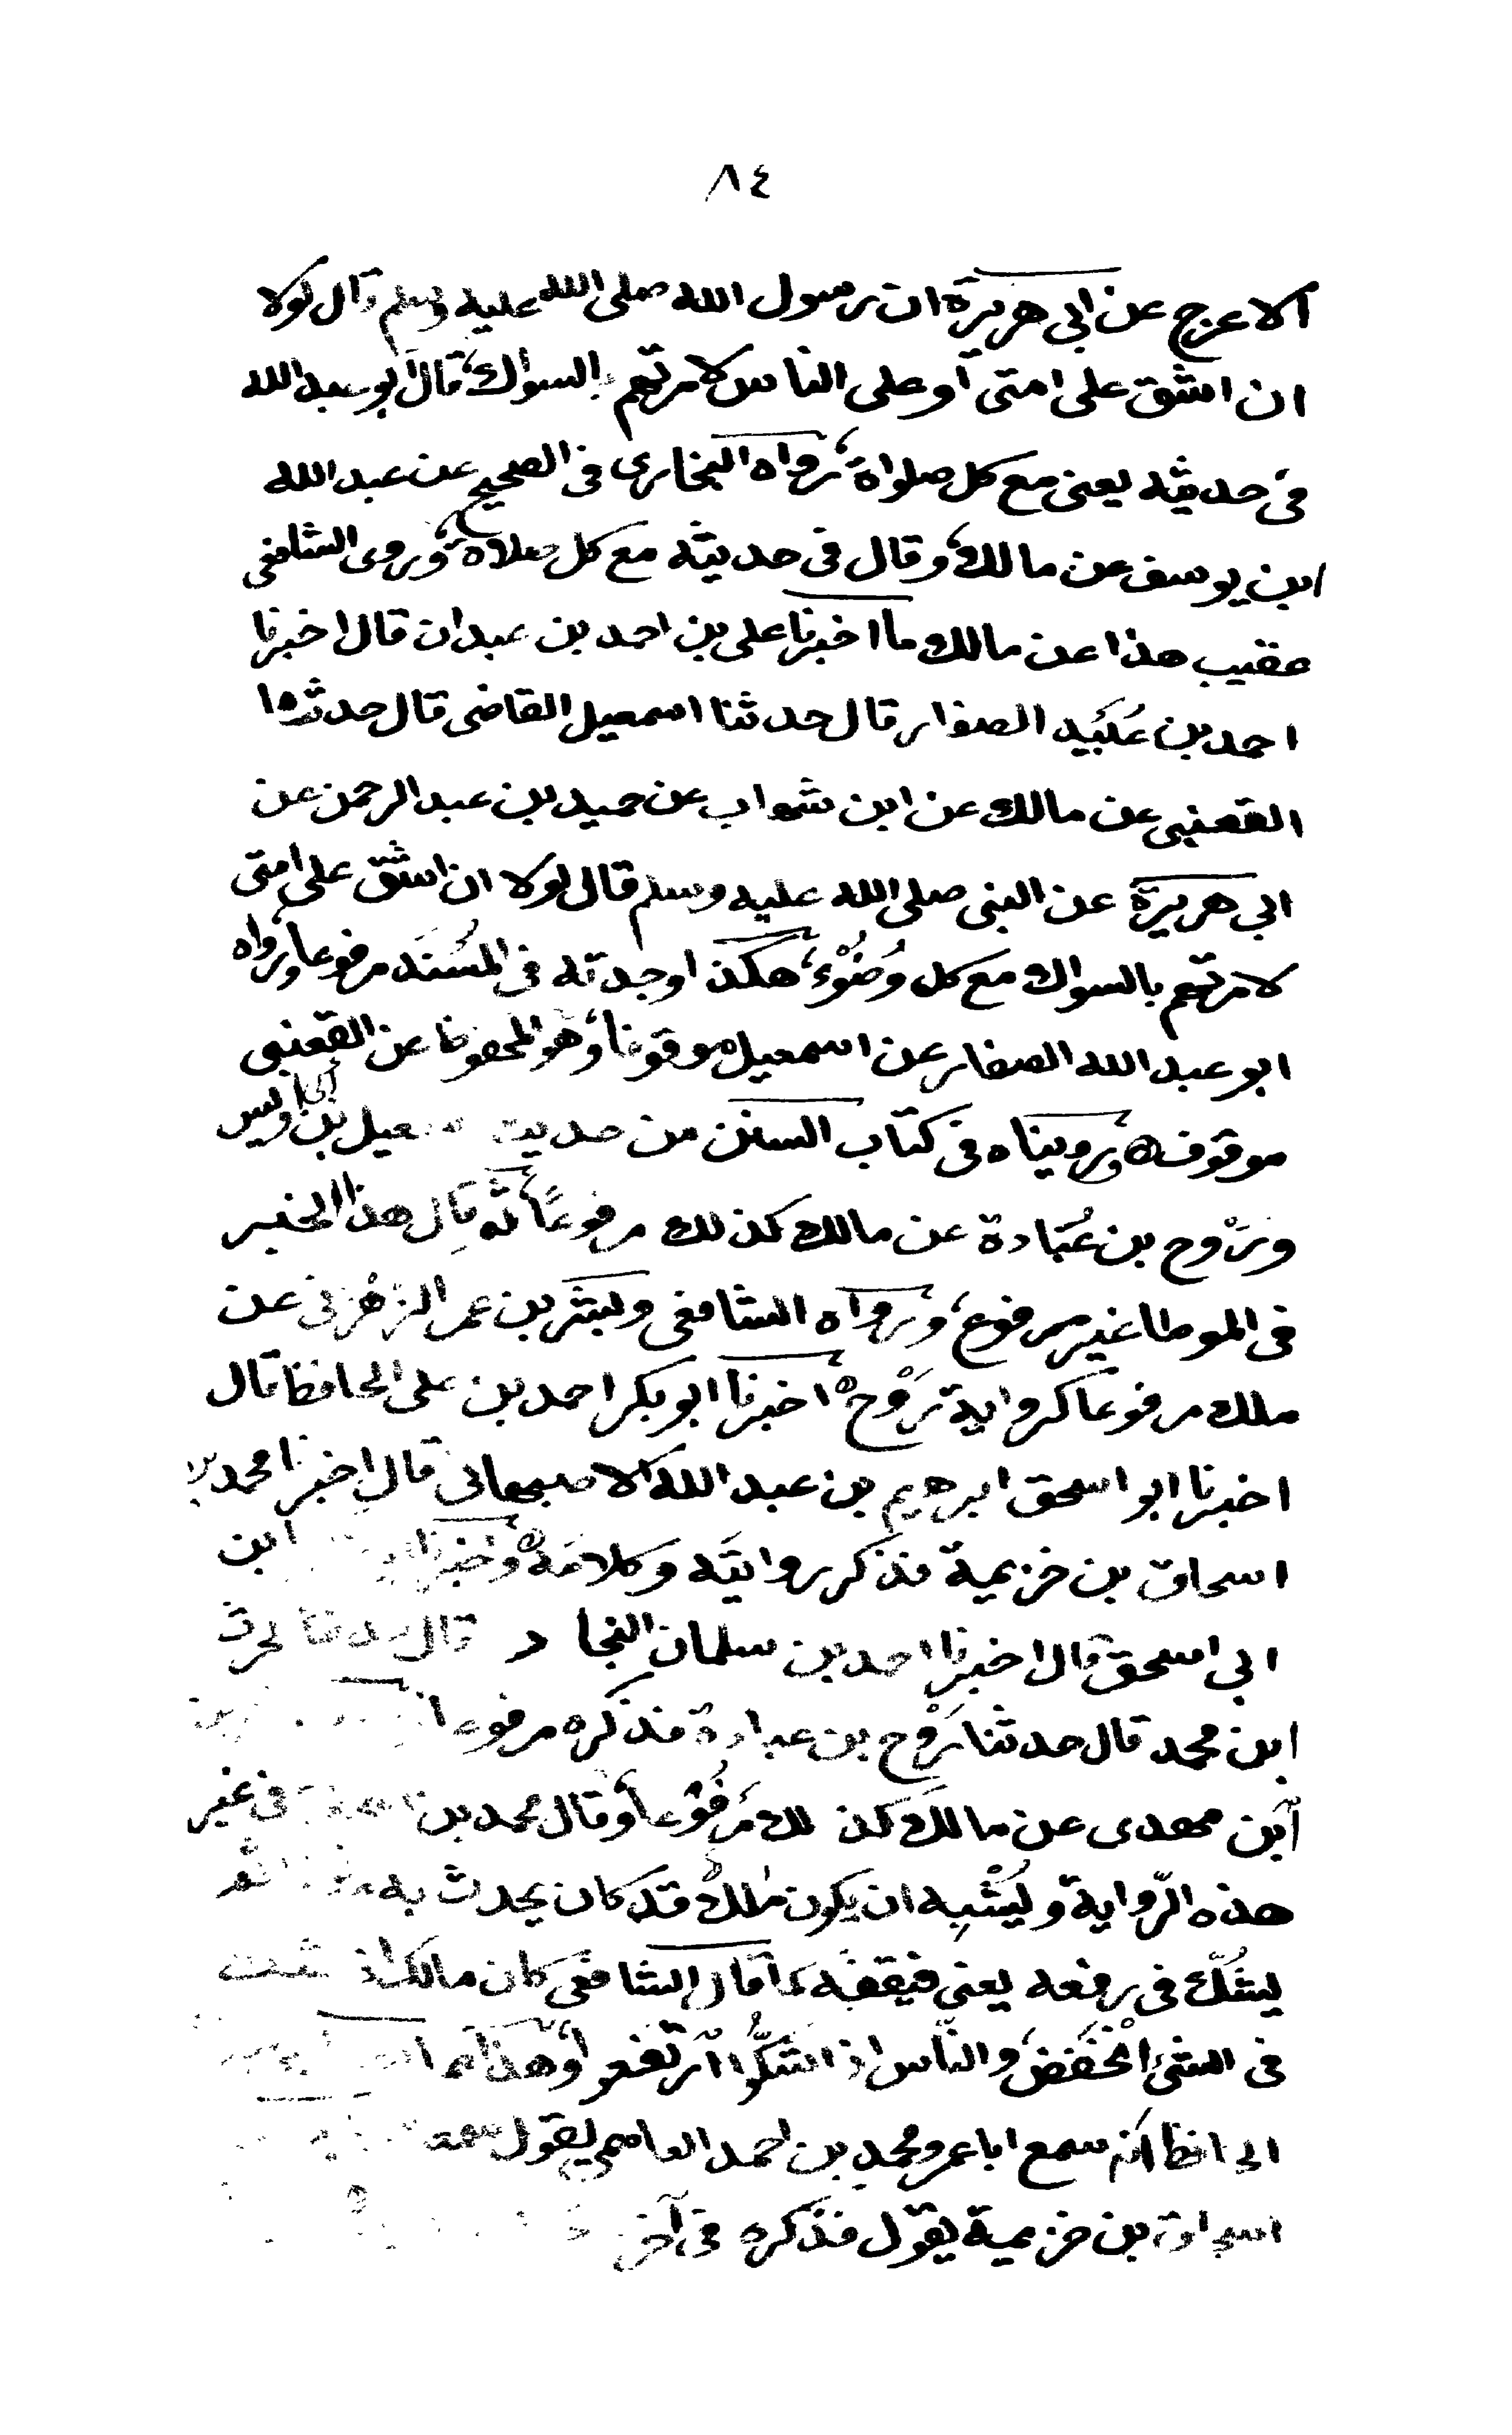 ٨٤
الاعرج عن ابي هريرة ان رسول الله صلى الله عليه وسلم قال لولا
ان اشق على امتى او على الناس لامرتهم بالسواك، قال ابو عبد الله
فى حديثه يعنى مع كل صلواة، رواه البخارى فى الصحيح عن عبد الله
ابن يوسف عن مالك، وقال فى حديثه مع كل صلاة، وروى الشافعى
عقيب هذا عن مالك ما اخبرنا على بن احمد بن عبدان قال اخبرنا
احمد بن عُبَيد الصفار قال حدثنا اسمعيل القاضى قال حدثنا
القعنبى عن مالك عن ابن شهاب عن حميد بن عبد الرحمن عن
ابي هريرة عن النبى صلى الله عليه وسلم قال لولا ان اشق على امتى
لامرتهم بالسواك مع كل وُضُوْء، هكذا وجدته فى المُسنَد مرفوعا، ورواه
ابو عبد الله الصفار عن اسمعيل موقوفا، وهو المحفوظ عن القعنبى
موقوف ه، وروينا ه فى كتاب السنن من حديث اسمعيل بن ابى اويس
ورَوْح بن عُبَادة عن مالك كذلك مرفوعًا، ثم قال هذا الخبر
فى الموطا غير مرفوع، ورواه الشافعى وبشر بن عمر الزهرانى عن
ملك مرفوعًا كرواية رَوْح ه، اخبرنا ابو بكر احمد بن على الحافظ قال
اخبرنا ابو اسحق ابرهيم بن عبد الله الاصبهانى قال اخبرنا محمد بن
اسحاق بن خزيمة فذكر روايتَه وكلامَه ه، واخبرنا ابن
ابي اسحق قال اخبرنا احمد بن سلمان النجا د قال حدثنا الحرث
ابن محمد قال حدثنا رَوْح بن عبادة فذكره مرفوعا
ابن مهدى عن مالك كذلك مَرفُوْعاً، وقال محمد بن فى غير
هذه الرّواية ويُشْبِه ان يكون ملك قد كان يحدث به ثم
يشُكّ فى رفعه يعنى فيقفَه كما قال الشافعى كان مالك اذا شك
فى الشئ انْخفَض، والنّاس اذا شكُّوا ارتفعوا، وهذا
الحافظ انه سمع ابا عمرو محمد بن احمد العاصمى يقول سمعت
اسحاق بن خزيمة يقول فذكره فى آخر